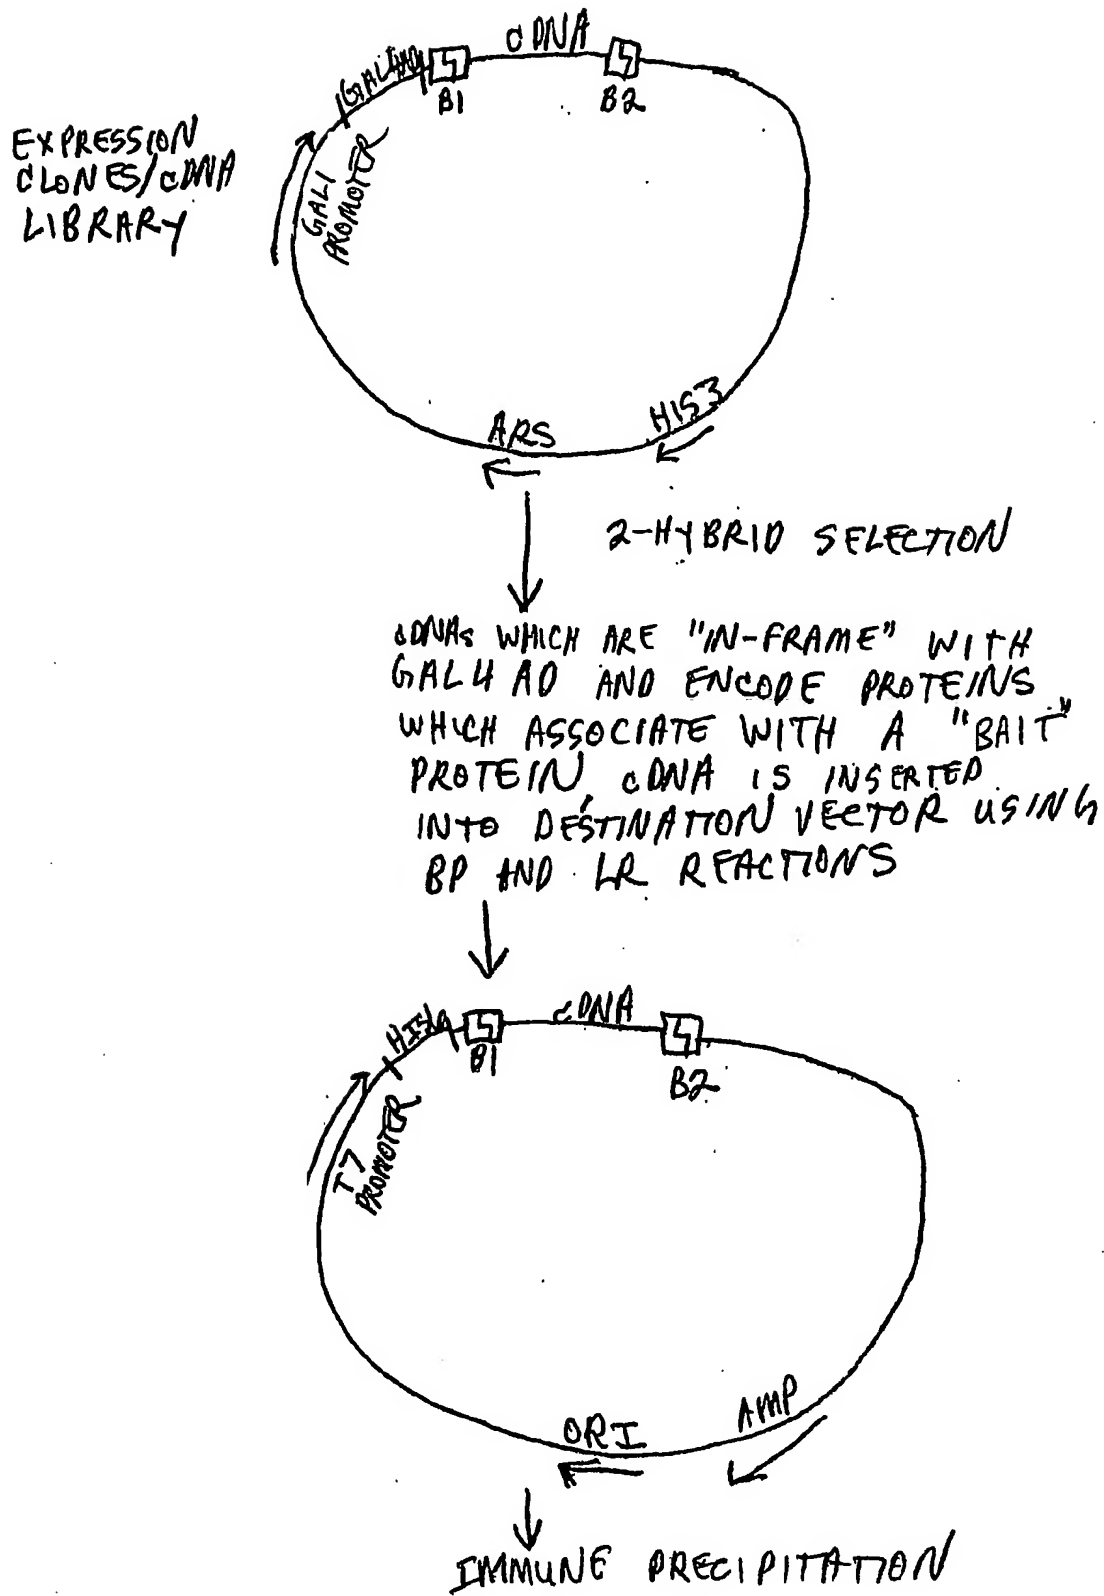 cDNA
GAL4AD
B1
B2
EXPRESSION
CLONES/cDNA
LIBRARY
GAL1
PROMOTER
HIS3
ARS
2-HYBRID SELECTION
cDNAs WHICH ARE "IN-FRAME" WITH
GAL4 AD AND ENCODE PROTEINS
WHICH ASSOCIATE WITH A "BAIT"
PROTEIN, cDNA IS INSERTED
INTO DESTINATION VECTOR USING
BP AND LR REACTIONS
cDNA
B1
B2
T7
PROMOTER
AMP
ORI
IMMUNE PRECIPITATION